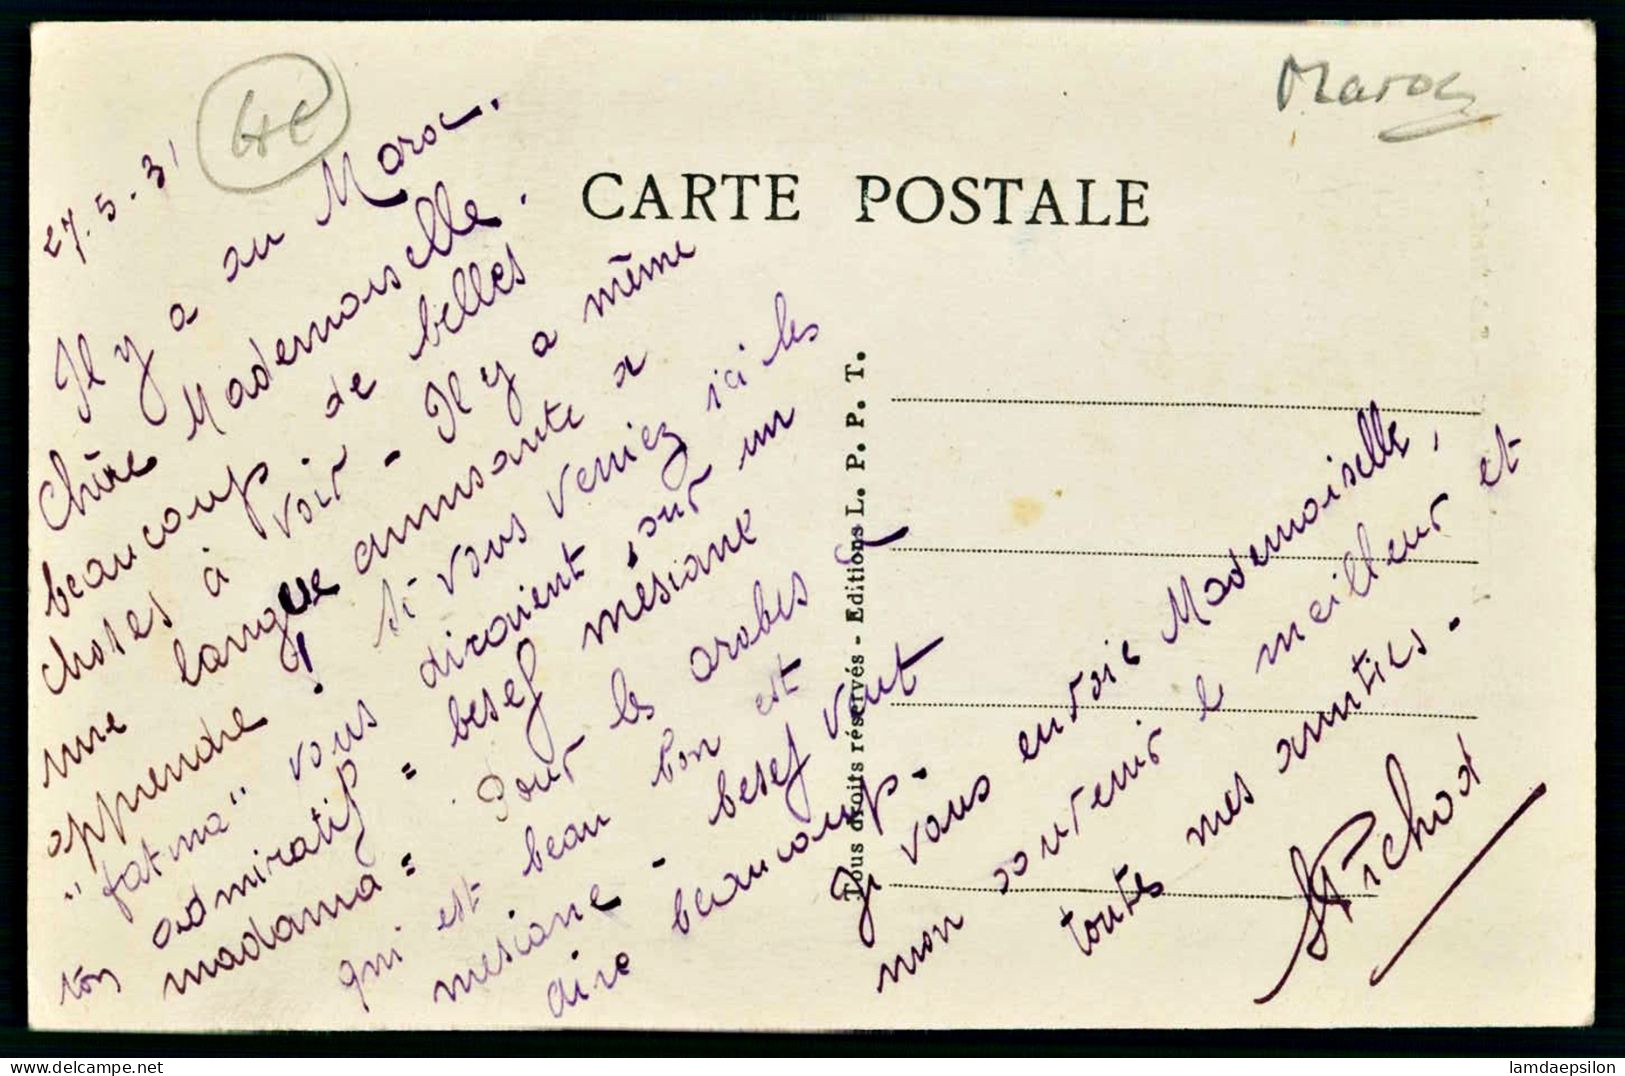 Maroc
CARTE POSTALE
27.5.31
Chère Mademoiselle.
Il y a au Maroc.
beaucoup de belles
choses à voir - Il y a même
une langue amusante à
apprendre ! Si vous veniez ici les
"fatma" vous diraient, sur un
ton admiratif = besef mesiane
madama = Pour les arabes
qui est beau bon est
mesiane - besef veut
dire beaucoup -
Je vous envoie Mademoiselle,
mon souvenir le meilleur et
toutes mes amitiés -
Pichod
Tous droits réservés - Editions L. P. P. T.
lamdaepsilon